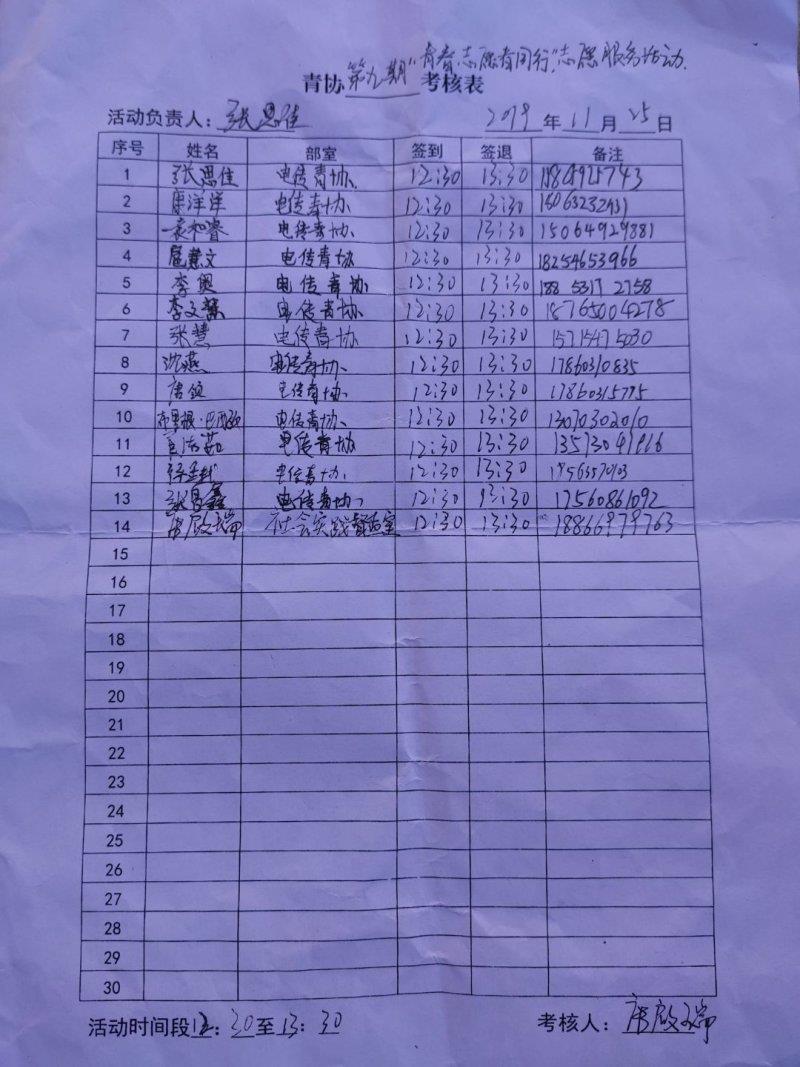 第九期"青春志愿者同行"志愿服务活动
青协 考核表
活动负责人：张思佳 2019年11月25日
序号 姓名 部室 签到 签退 备注
1 张思佳 电传青协 12:30 13:30
2 康洋洋 电传青协 12:30 13:30
3 袁和睿 电传青协 12:30 13:30 15064929881
4 电传青协 12:30 13:30 18254653966
5 李奥 电传青协 12:30 13:30 188 5317 2758
6 李文慧 电传青协 12:30 13:30 18765004278
7 张慧 电传青协 12:30 13:30 15715475030
8 沈燕 电传青协 12:30 13:30 17860310835
9 电传青协 12:30 13:30 17860315775
10 电传青协 12:30 13:30 13070302010
11 电传青协 12:30 13:30
12 电传青协 12:30 13:30
13 张昌鑫 电传青协 12:30 13:30 17560861092
14 唐啟瑞 社会实践督查室 12:30 13:30 18866979763
15
16
17
18
19
20
21
22
23
24
25
26
27
28
29
30
活动时间段12：30至13：30 考核人：唐啟瑞